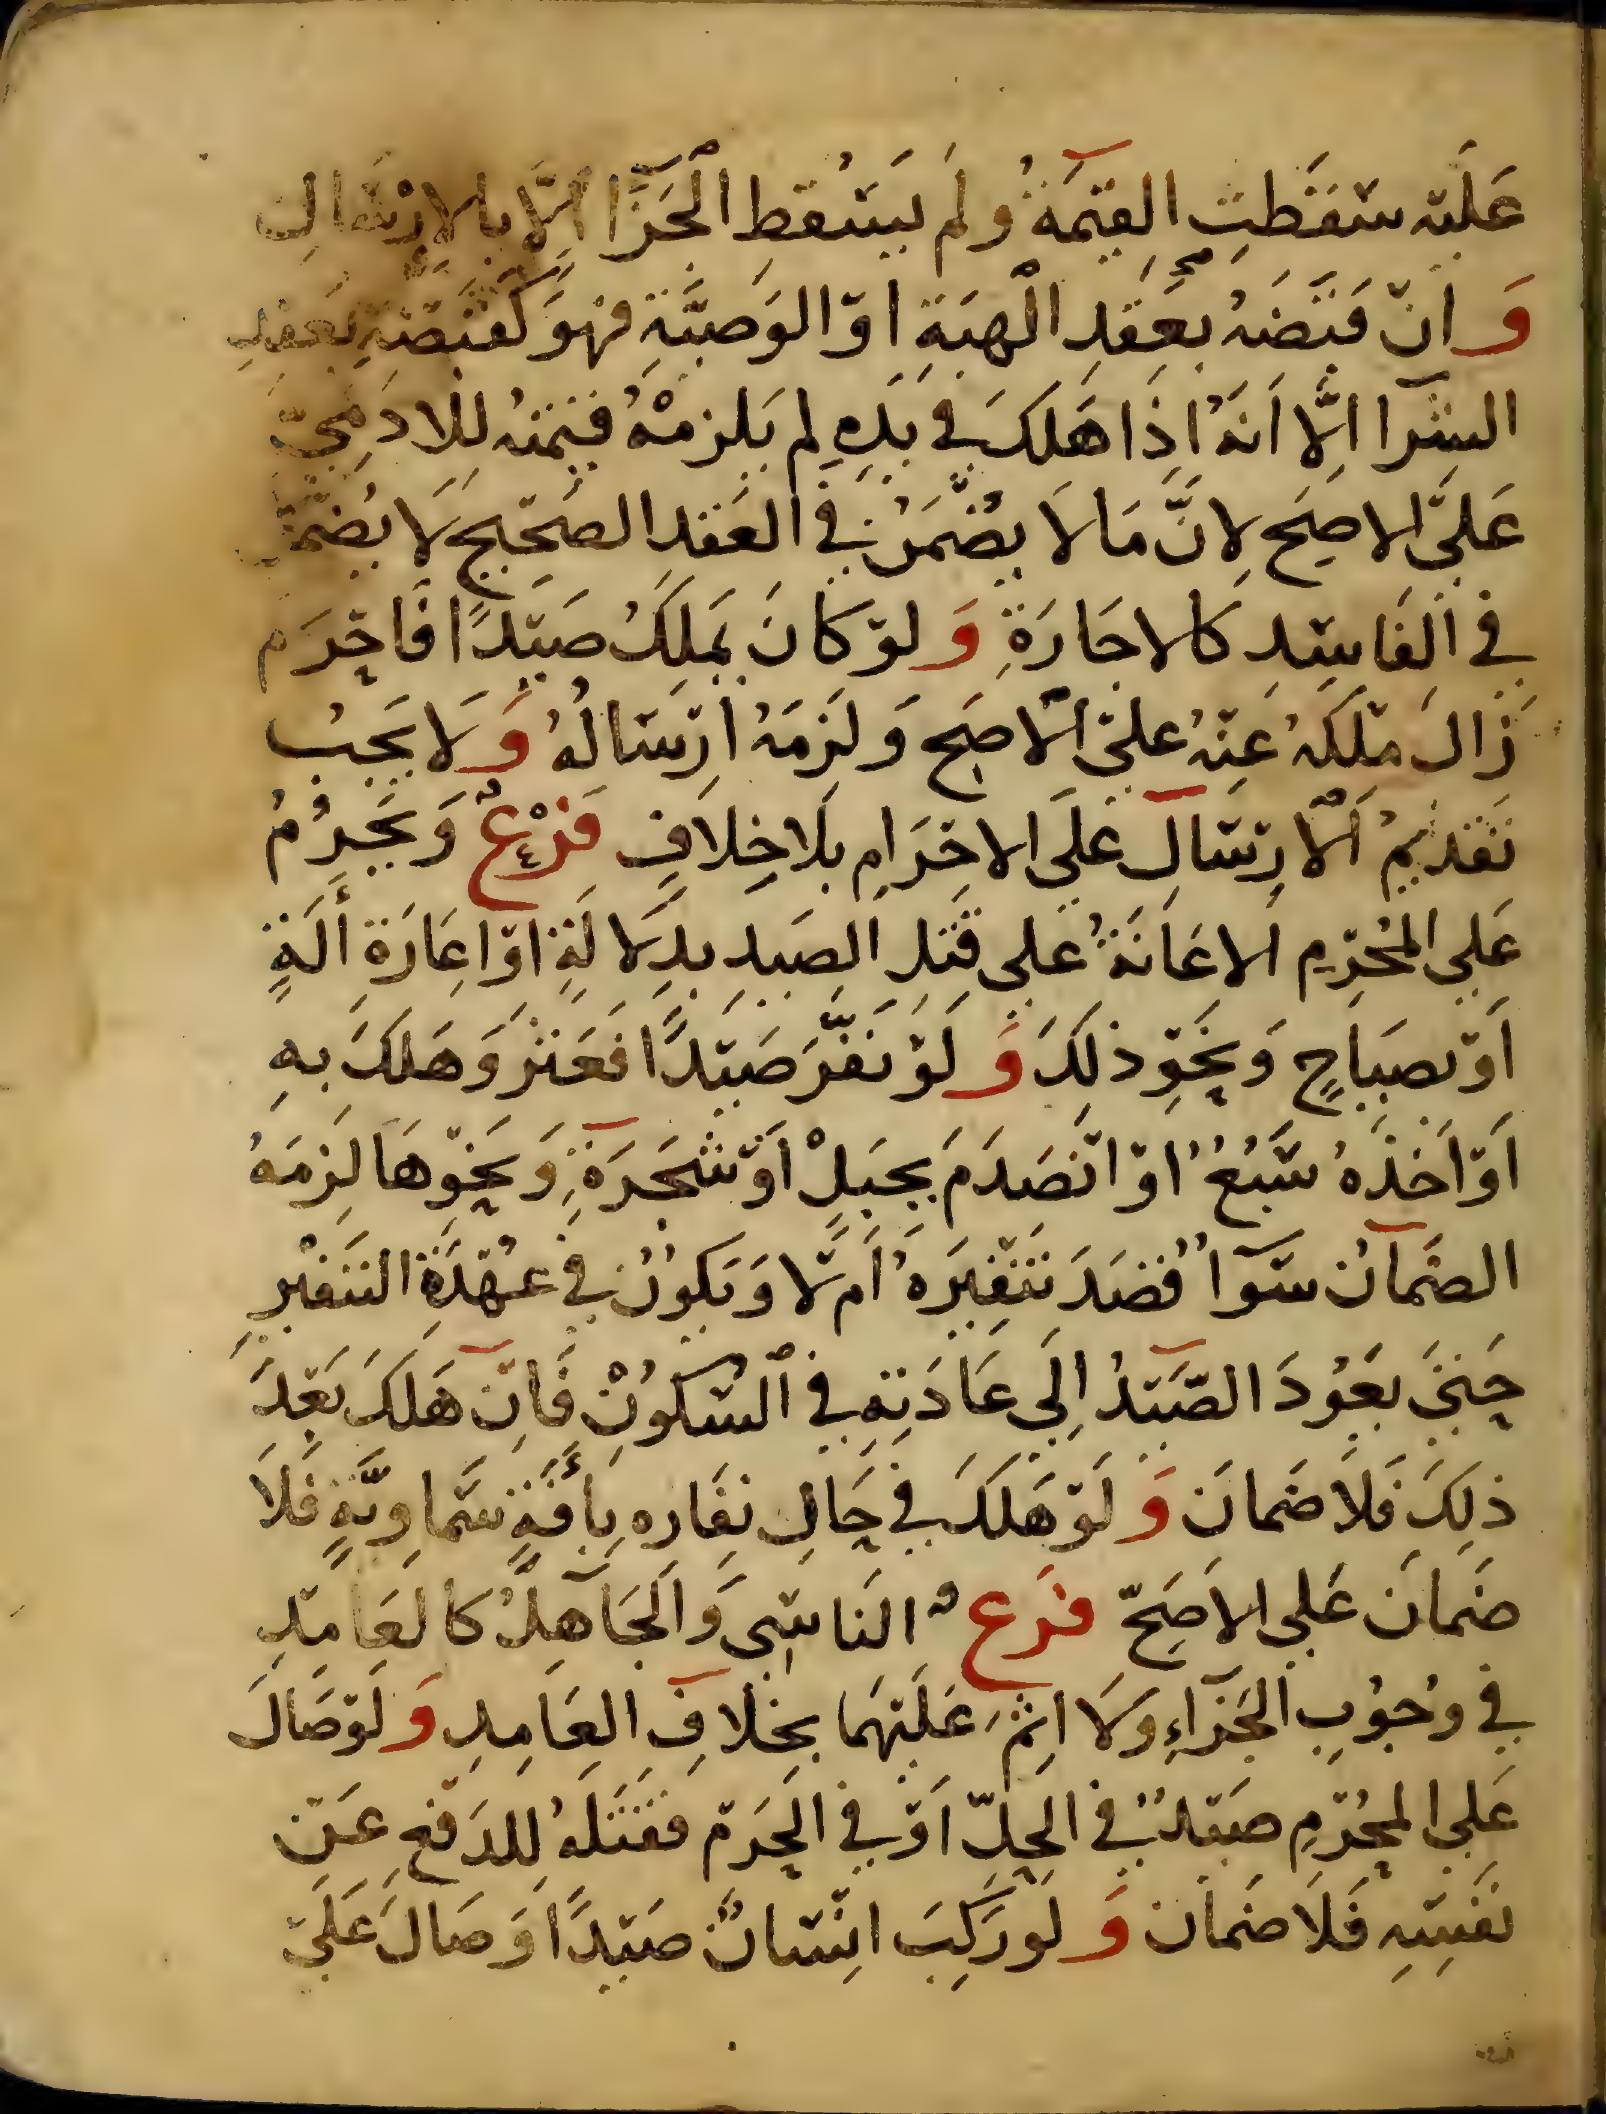 عَلَيْه سَقَطَتِ القِيمَةُ وَلَم يَسْقُطِ الْجَزَآ اِلَّا بِالاِرْسَالِ
وَ انْ قَبَضَهُ بِعَقْدِ الْهِبَةِ اوْ الوَصِيَّةِ فَهْوَ كَقَبْضِهِ بِعَقْدِ
الشِّرَآ اِلَّا اَنَّهُ اِذَا هَلَكَ فِي يَدِهِ لم يَلْزمْهُ قِيمَتُهُ لِلادَمِيِّ
عَلَى الاصَحِ لِانَّ مَا لَا يُضْمَنُ فِي العَقْدِ الصَحِيحِ لَا يُضْمَنُ
فِي الفَاسِدِ كَالاجَارَةِ وَ لَوْ كَانَ يَمْلِكُ صَيْدًا فَاحْرَم
زَالَ مِلْكَهُ عَنْهُ عَلَى الاصَحِ وَلَزِمَهُ ارْسَالُهُ وَ لَا يَجِبُ
تَقْدِيمُ الارْسَالِ عَلَى الاحْرَامِ بِلَا خِلَافٍ فَرْعٌ وَيَحْرُمُ
عَلى المُحْرِمِ الاعَانَةُ عَلى قَتْلِ الصَيْدِ بِدِلَالَةٍ اوْ اِعَارَةِ أَلَةٍ
اَوْ بِصِيَاحٍ وَنَحْوِ ذلِكَ وَ لَوْ نَفَّرَ صَيْدًا فَعَثَرَ وَهَلَكَ بِهِ
اَوْ اَخَذَهُ سَبُعٌ اوْ انْصَدَمَ بِجَبَلٍ اَوْ شَجَرَةٍ وَنَحْوِهَا لَزِمَهُ
الضَمَانُ سَوَآ قَصَدَ تَنْفِيرَهُ اَمْ لَا وَيَكُونُ فِي عُهْدَةِ التَنْفِيرِ
حَتَّى يَعُودَ الصَّيْدُ اِلَى عَادَتِهِ فِي السُكُونِ فَاِنْ هَلَكَ بَعْدَ
ذلِكَ فَلَا ضَمَانَ وَ لَوْ هَلَكَ فِي حَالِ نِفَارِهِ بِأَفَةٍ سَمَاوِيَّةٍ فَلَا
ضَمَانَ عَلى الاَصَحِّ فَرْعٌ النَاسِى وَالجَاهِلُ كَالعَامِدِ
فِي وُجُوبِ الجَزَآءِ وَلَا اِثْمَ عَلَيْهِمَا بِخِلَافِ العَامِدِ وَ لَوْ صَالَ
عَلى المُحْرِمِ صَيْدٌ فِي الحِلِّ اَوْ فِي الحَرَمْ فَقَتَلَهُ لِلدَفْعِ عَنْ
نَفْسِهِ فَلَا ضَمَانَ وَ لَوْ رَكِبَ انْسَانٌ صَيْدًا وَصَالَ عَلَى